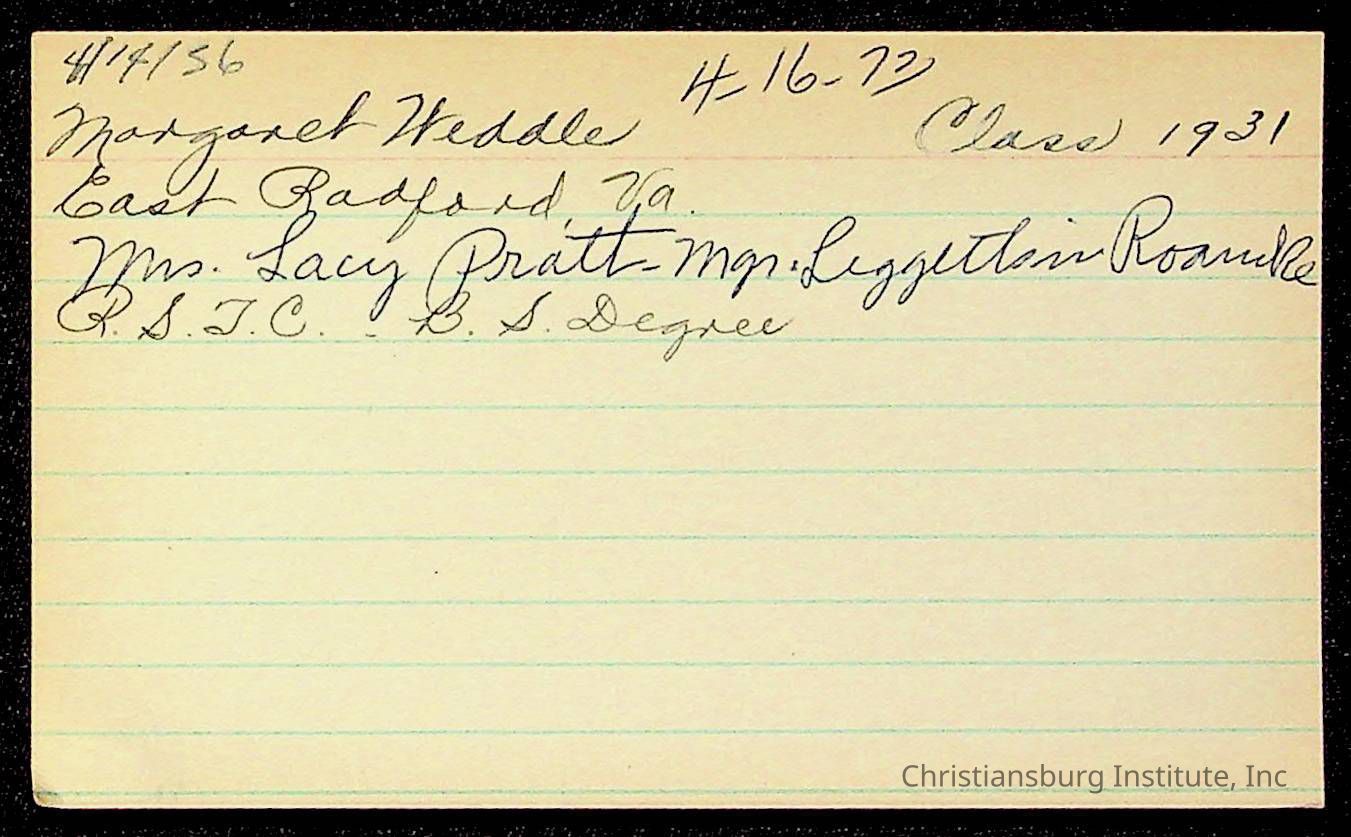 4/14/56
4-16-73
Margaret Weddle Class 1931
East Radford, Va.
Mrs. Lacy Pratt - Mgr. Leggett in Roanoke
R. S. T. C. - B. S. Degree
Christiansburg Institute, Inc